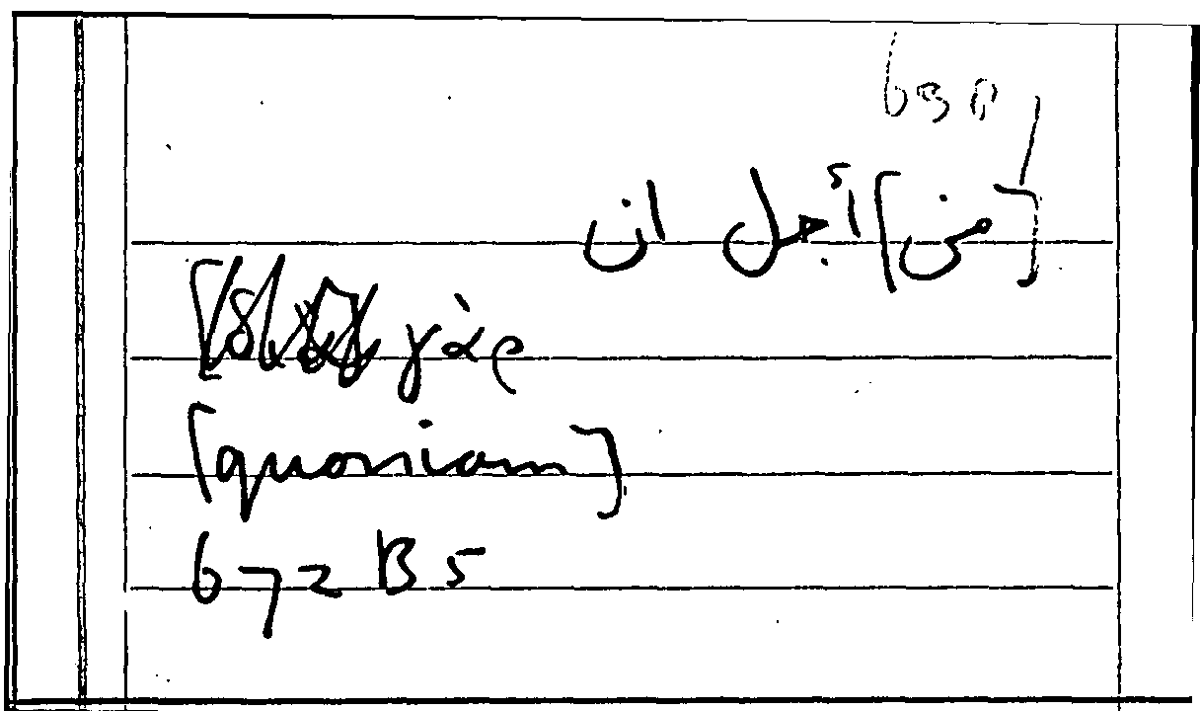 [من] أجل ان
γὰρ
[quoniam]
672 B 5